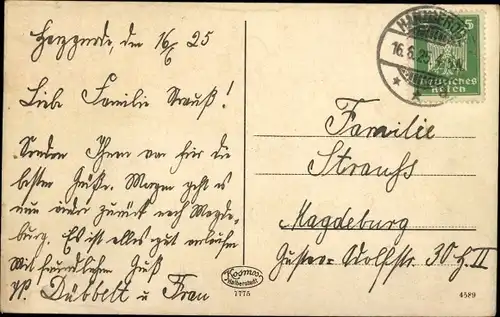 Herzrode, den 16/6 25
Liebe Familie Strauß!
Senden Ihnen von hier die
besten Grüße. Morgen geht es
nun wieder zurück nach Magde-
burg. Es ist alles gut verlaufen
Mit freundlichem Gruß
W. Dübbelt u Frau
16.6.25
5
Deutsches
Reich
Familie
Strauß
Magdeburg
Gustav-Adolfstr. 30 H. II
Kosmos
Halberstadt
7775
4589